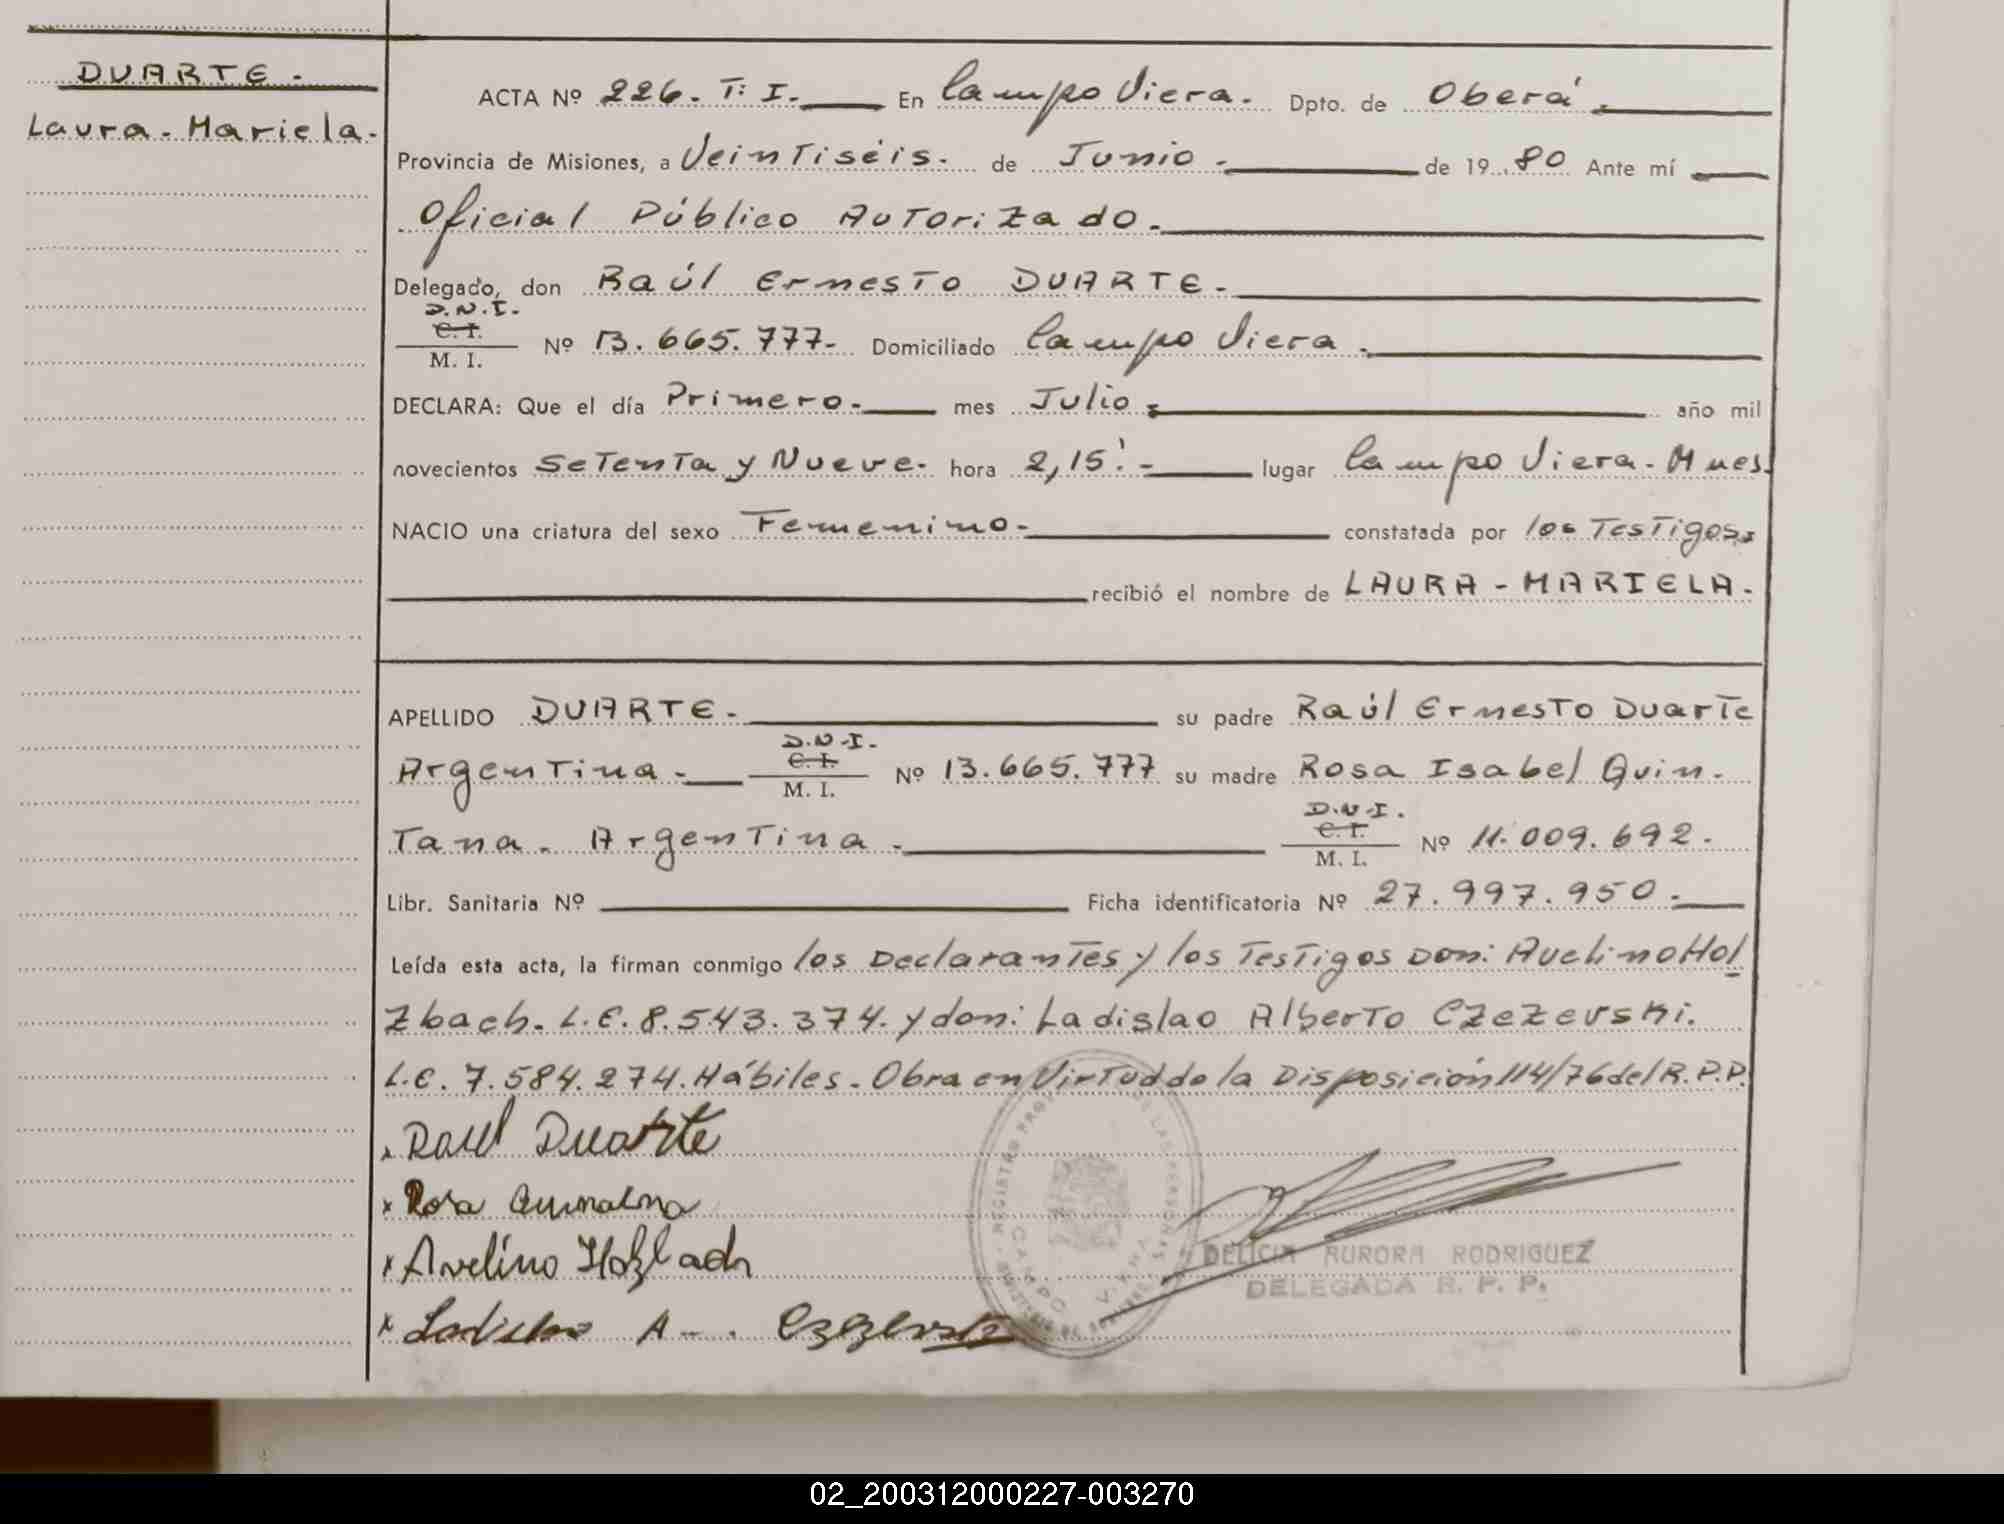 DUARTE.
Laura-Mariela.
ACTA Nº 226. T: I. En Campo Viera. Dpto. de Oberá.
Provincia de Misiones, a Veintiséis. de Junio. de 19 80 Ante mí
Oficial Público Autorizado.
Delegado, don Raúl Ernesto DUARTE.
D.N.I.
C. I.
M. I. Nº 13.665.777. Domiciliado Campo Viera.
DECLARA: Que el día Primero. mes Julio. año mil
novecientos Setenta y Nueve. hora 2,15'. lugar Campo Viera. Mnes.
NACIO una criatura del sexo Femenino. constatada por los Testigos.
recibió el nombre de LAURA-MARIELA.
APELLIDO DUARTE. su padre Raúl Ernesto Duarte
D.N.I.
C. I.
Argentina. M. I. Nº 13.665.777 su madre Rosa Isabel Quin-
D.N.I.
C. I.
tana. Argentina. M. I. Nº 11.009.692.
Libr. Sanitaria Nº Ficha identificatoria Nº 27.997.950.
Leída esta acta, la firman conmigo los Declarantes y los Testigos Don: Avelino Hol
zbach. L.E. 8.543.374. y don: Ladislao Alberto Czezevski.
L.E. 7.584.274. Hábiles. Obra en Virtud de la Disposición 114/76 del R.P.P.
x Raul Duarte
x Rosa Quintana
x Avelino Holzbach
x Ladislao A. Czezevski
CAMPO VIERA
DELICIA AURORA RODRIGUEZ
DELEGADA R. P. P.
02_200312000227-003270